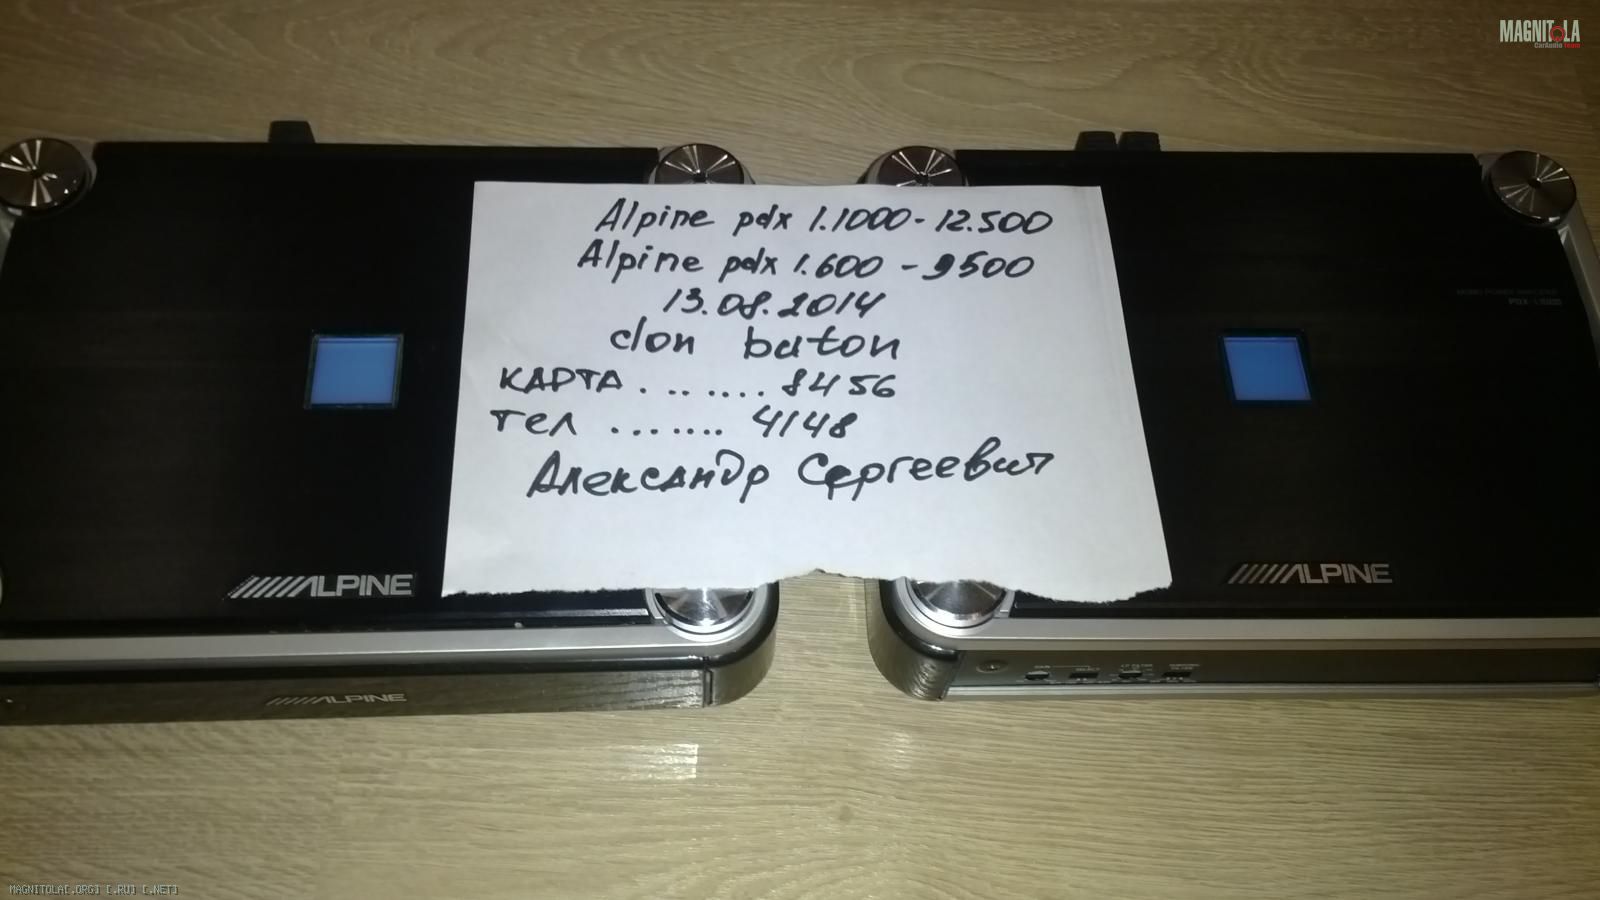 MAGNITOLA
CarAudio Team
Alpine pdx 1.1000-12.500
Alpine pdx 1.600 - 9500
13.08.2014
clon baton
КАРТА . .. .... 8456
тел ....... 4148
Александр Сергеевич
MONO POWER AMPLIFIER
PDX-1.1000
ALPINE
ALPINE
ALPINE
GAIN SELECT LP FILTER SUBSONIC FILTER
MAGNITOLA[.ORG] [.RU] [.NET]